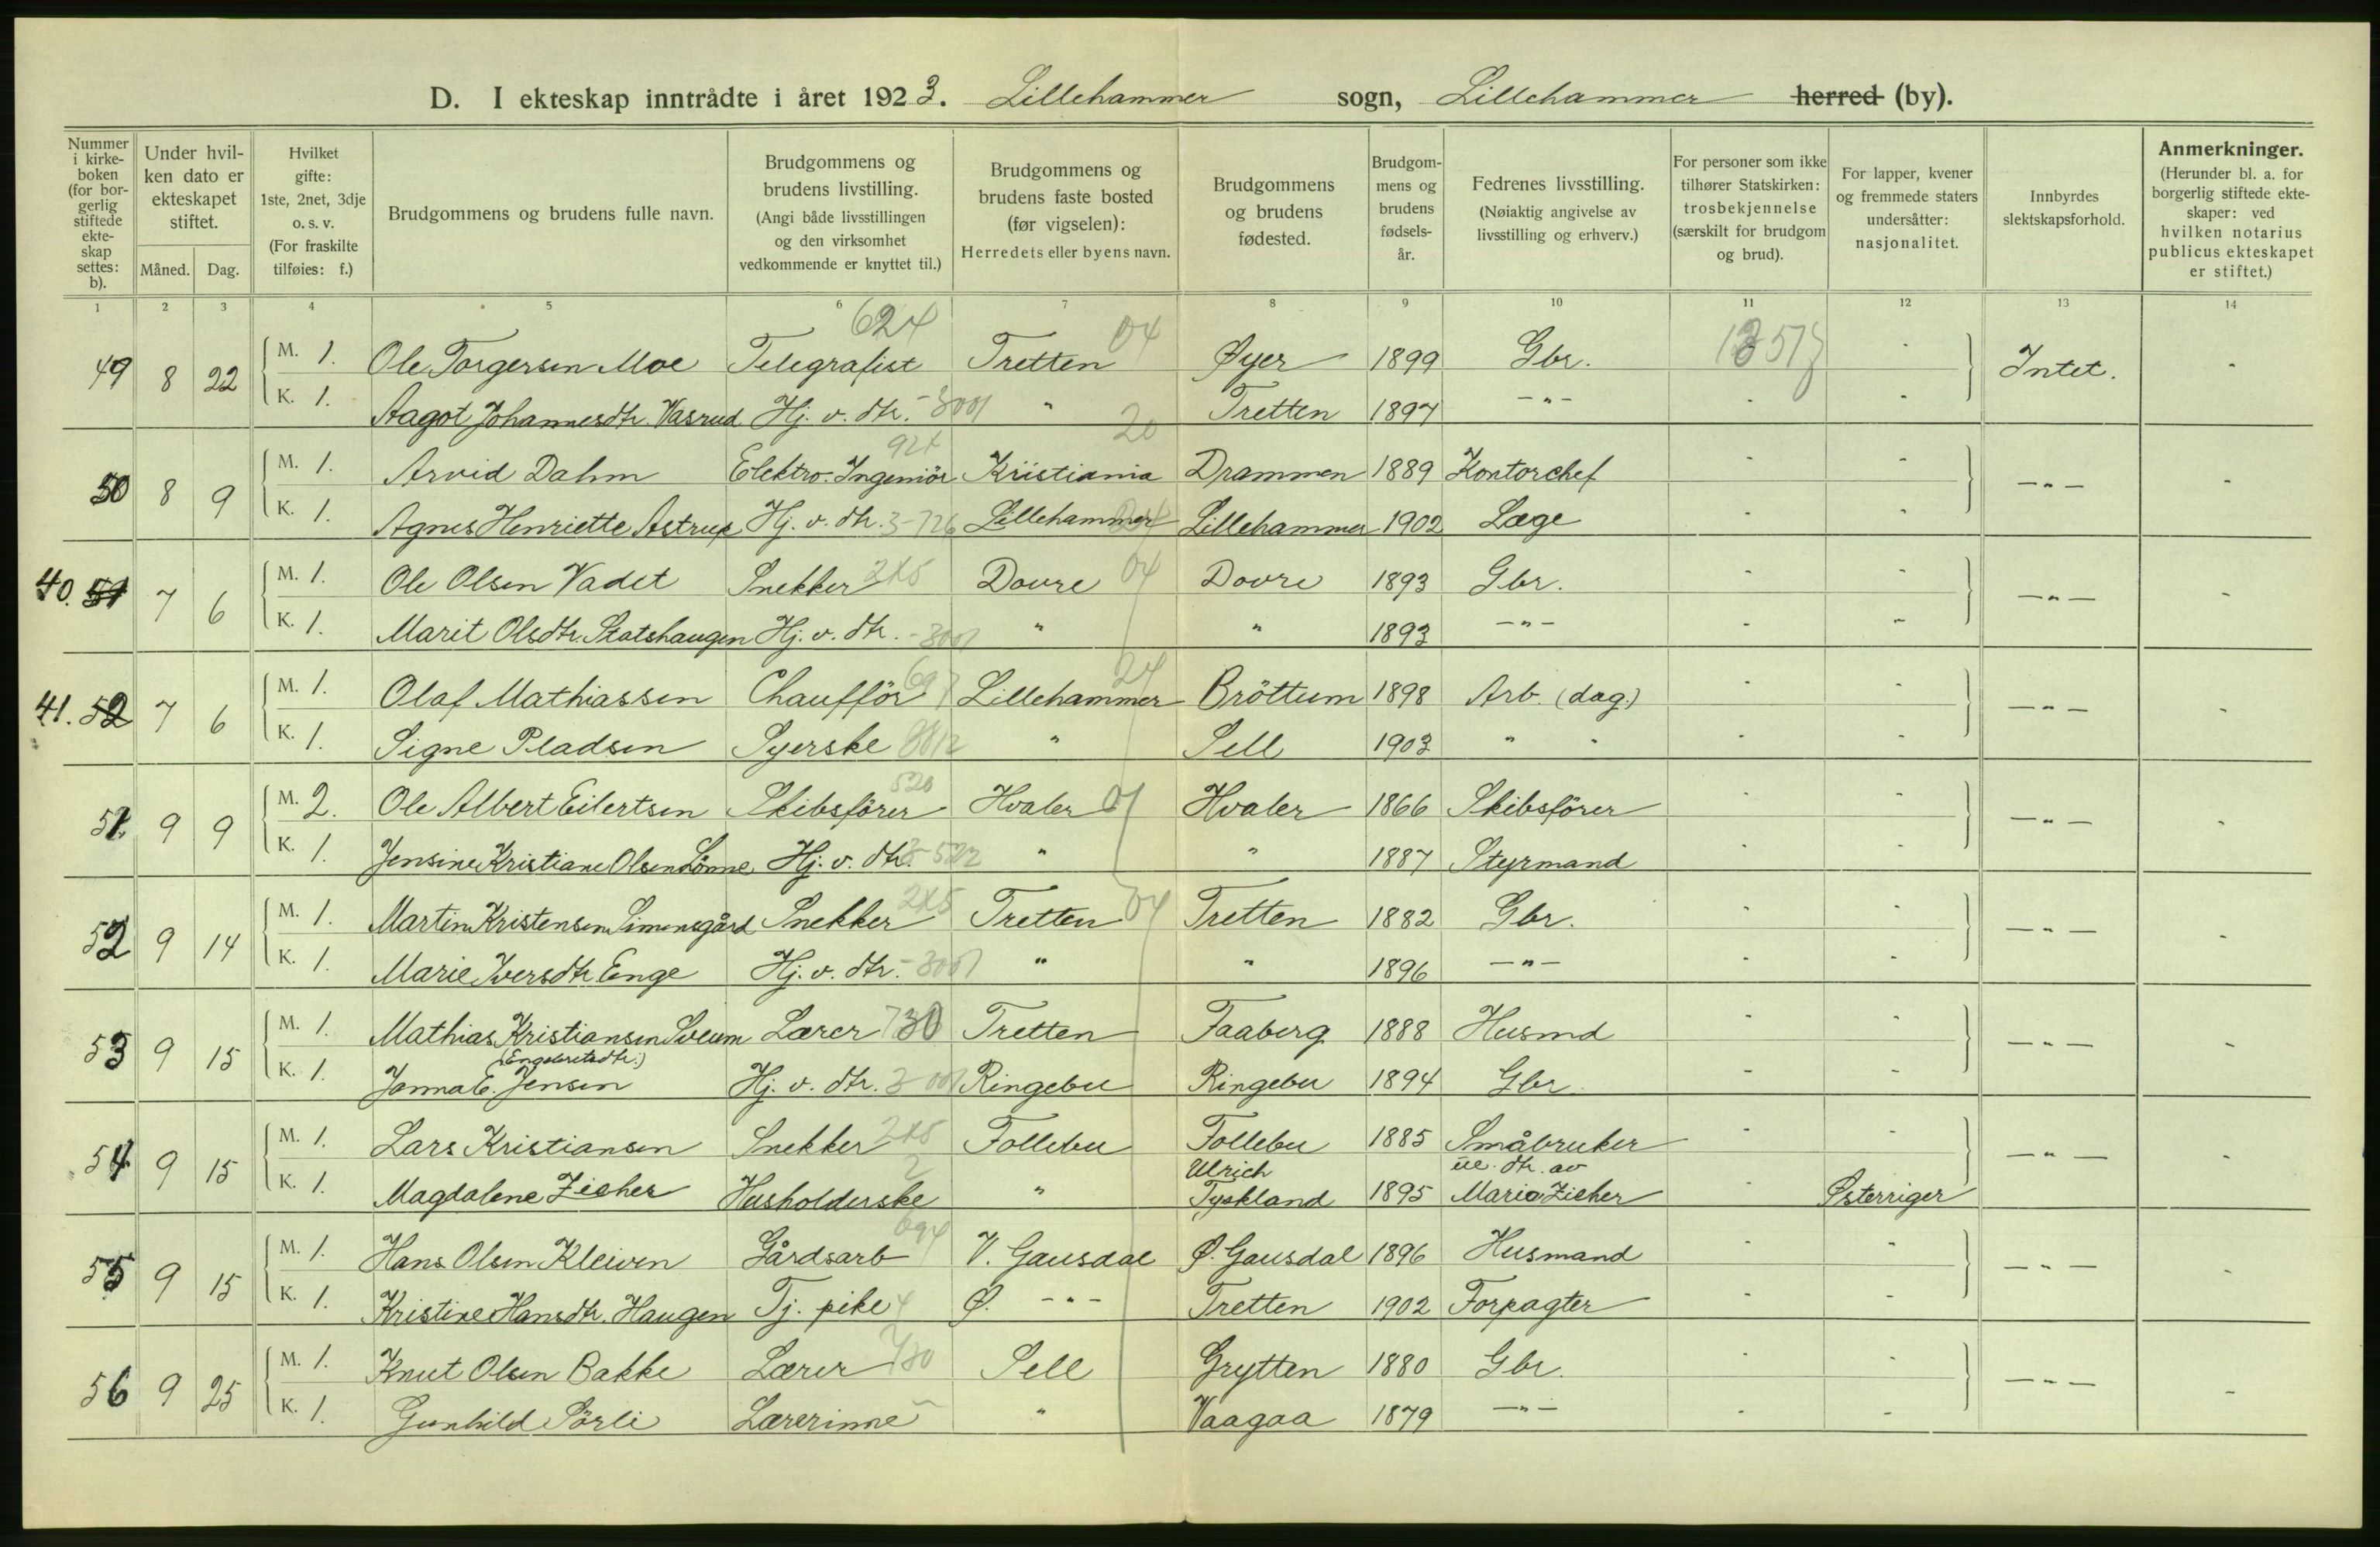 D. I ekteskap inntrådte i året 1923. Lillehammer sogn, Lillehammer herred (by).
Nummer i kirkeboken (for borgerlig stiftede ekteskap settes: b).
Under hvilken dato er ekteskapet stiftet.
Måned. Dag.
Hvilket gifte: 1ste, 2net, 3dje o. s. v. (For fraskilte tilføies: f.)
Brudgommens og brudens fulle navn.
Brudgommens og brudens livstilling. (Angi både livsstillingen og den virksomhet vedkommende er knyttet til.)
Brudgommens og brudens faste bosted (før vigselen): Herredets eller byens navn.
Brudgommens og brudens fødested.
Brudgommens og brudens fødselsår.
Fedrenes livsstilling. (Nøiaktig angivelse av livsstilling og erhverv.)
For personer som ikke tilhører Statskirken: trosbekjennelse (særskilt for brudgom og brud).
For lapper, kvener og fremmede staters undersåtter: nasjonalitet.
Innbyrdes slektskapsforhold.
Anmerkninger. (Herunder bl. a. for borgerlig stiftede ekteskaper: ved hvilken notarius publicus ekteskapet er stiftet.)
1 2 3 4 5 6 7 8 9 10 11 12 13 14
624 04
49 8 22 M. 1. Ole Torgersen Moe Telegrafist Tretten Øyer 1899 Gbr. - Intet. -
K. 1. Aagot Johannesdtr. Vasrud Hj. v. dtr. -3001 " Tretten 1897 -"- - -
924 20
50 8 9 M. 1. Arvid Dahm Elektro. Ingeniör Kristiania Drammen 1889 Kontorchef - - -"- -
K. 1. Agnes Henriette Astrup Hj. v. dtr. 3-726 Lillehammer Lillehammer 1902 Læge - -
40. 51 7 6 M. 1. Ole Olsen Vadet Snekker 245 Dovre 04 Dovre 1893 Gbr. - - -"- -
K. 1. Marit Olsdtr. Statshaugen Hj. v. dtr. -3001 " " 1893 -"- - -
41. 52 7 6 M. 1. Olaf Mathiassen Chaufför Lillehammer 24 Bröttum 1898 Arb. (dag.) - - -"- -
K. 1. Signe Pladsen Syerske " Sell 1903 " " - -
520
51 9 9 M. 2. Ole Albert Eilertsen Skibsförer Hvaler 01 Hvaler 1866 Skibsförer - - -"- -
K. 1. Jensine Kristiane Olsen Lönne Hj. v. dtr. 3-522 " " 1887 Styrmand - -
52 9 14 M. 1. Martin Kristensen Simensgård Snekker 245 Tretten 04 Tretten 1882 Gbr. - - -"- -
K. 1. Marie Iversdtr Enge Hj. v. dtr. -3001 " " 1896 -"- - -
53 9 15 M. 1. Mathias Kristiansen Sveum Lærer 730 Tretten Faaberg 1888 Husmd - - -"- -
(Engebretsdtr.)
K. 1. Janna E. Jensen Hj. v. dtr. 3-001 Ringebu Ringebu 1894 Gbr. - -
54 9 15 M. 1. Lars Kristiansen Snekker 245 Follebu Follebu 1885 Småbruker - - -"- -
2 Ulrich ue. dtr. av
K. 1. Magdalene Zieher Husholderske " Tyskland 1895 Maria Zieher - Østerriger
694
55 9 15 M. 1. Hans Olsen Kleiven Gårdsarb V. Gausdal Ø. Gausdal 1896 Husmand - - -"- -
K. 1. Kristine Hansdtr. Haugen Tj. pike Ø. -"- Tretten 1902 Forpagter - -
56 9 25 M. 1. Knut Olsen Bakke Lærer 730 Sell Grytten 1880 Gbr. - - -"- -
K. 1. Gunhild Sörli Lærerinne " Vaagaa 1879 -"- - -